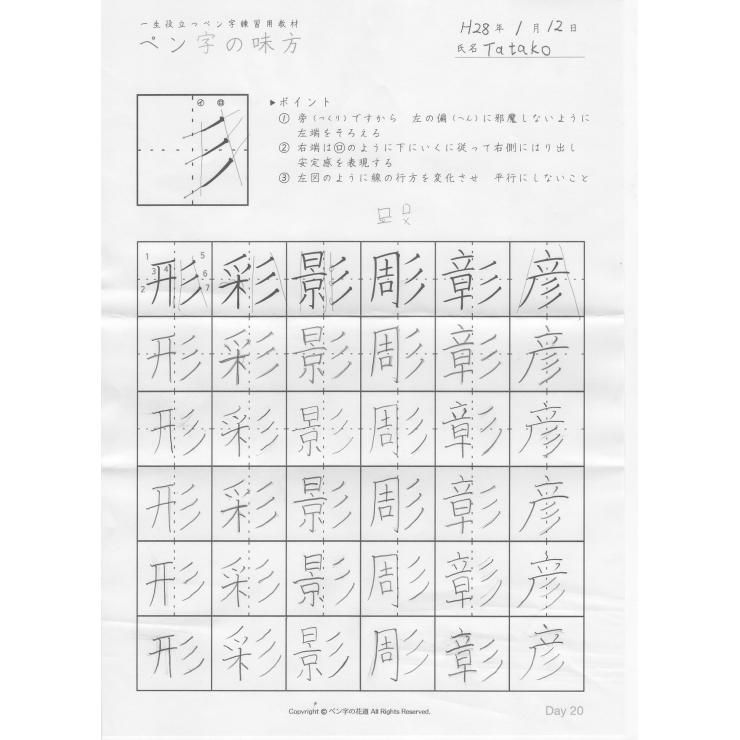 一生役立つペン字練習用教材
ペン字の味方
H28年 1月12日
氏名 Tatako
㋑ ㋺
▶ポイント
① 旁(つくり)ですから 左の偏(へん)に邪魔しないように
左端をそろえる
② 右端は㋺のように下にいくに従って右側にはり出し
安定感を表現する
③ 左図のように線の行方を変化させ 平行にしないこと
1 2 3 4 5 6 7
形 彩 影 彫 彰 彦
形 彩 影 彫 彰 彦
形 彩 影 彫 彰 彦
形 彩 影 彫 彰 彦
形 彩 影 彫 彰 彦
形 彩 影 彫 彰 彦
Copyright © ペン字の花道 All Rights Reserved.
Day 20